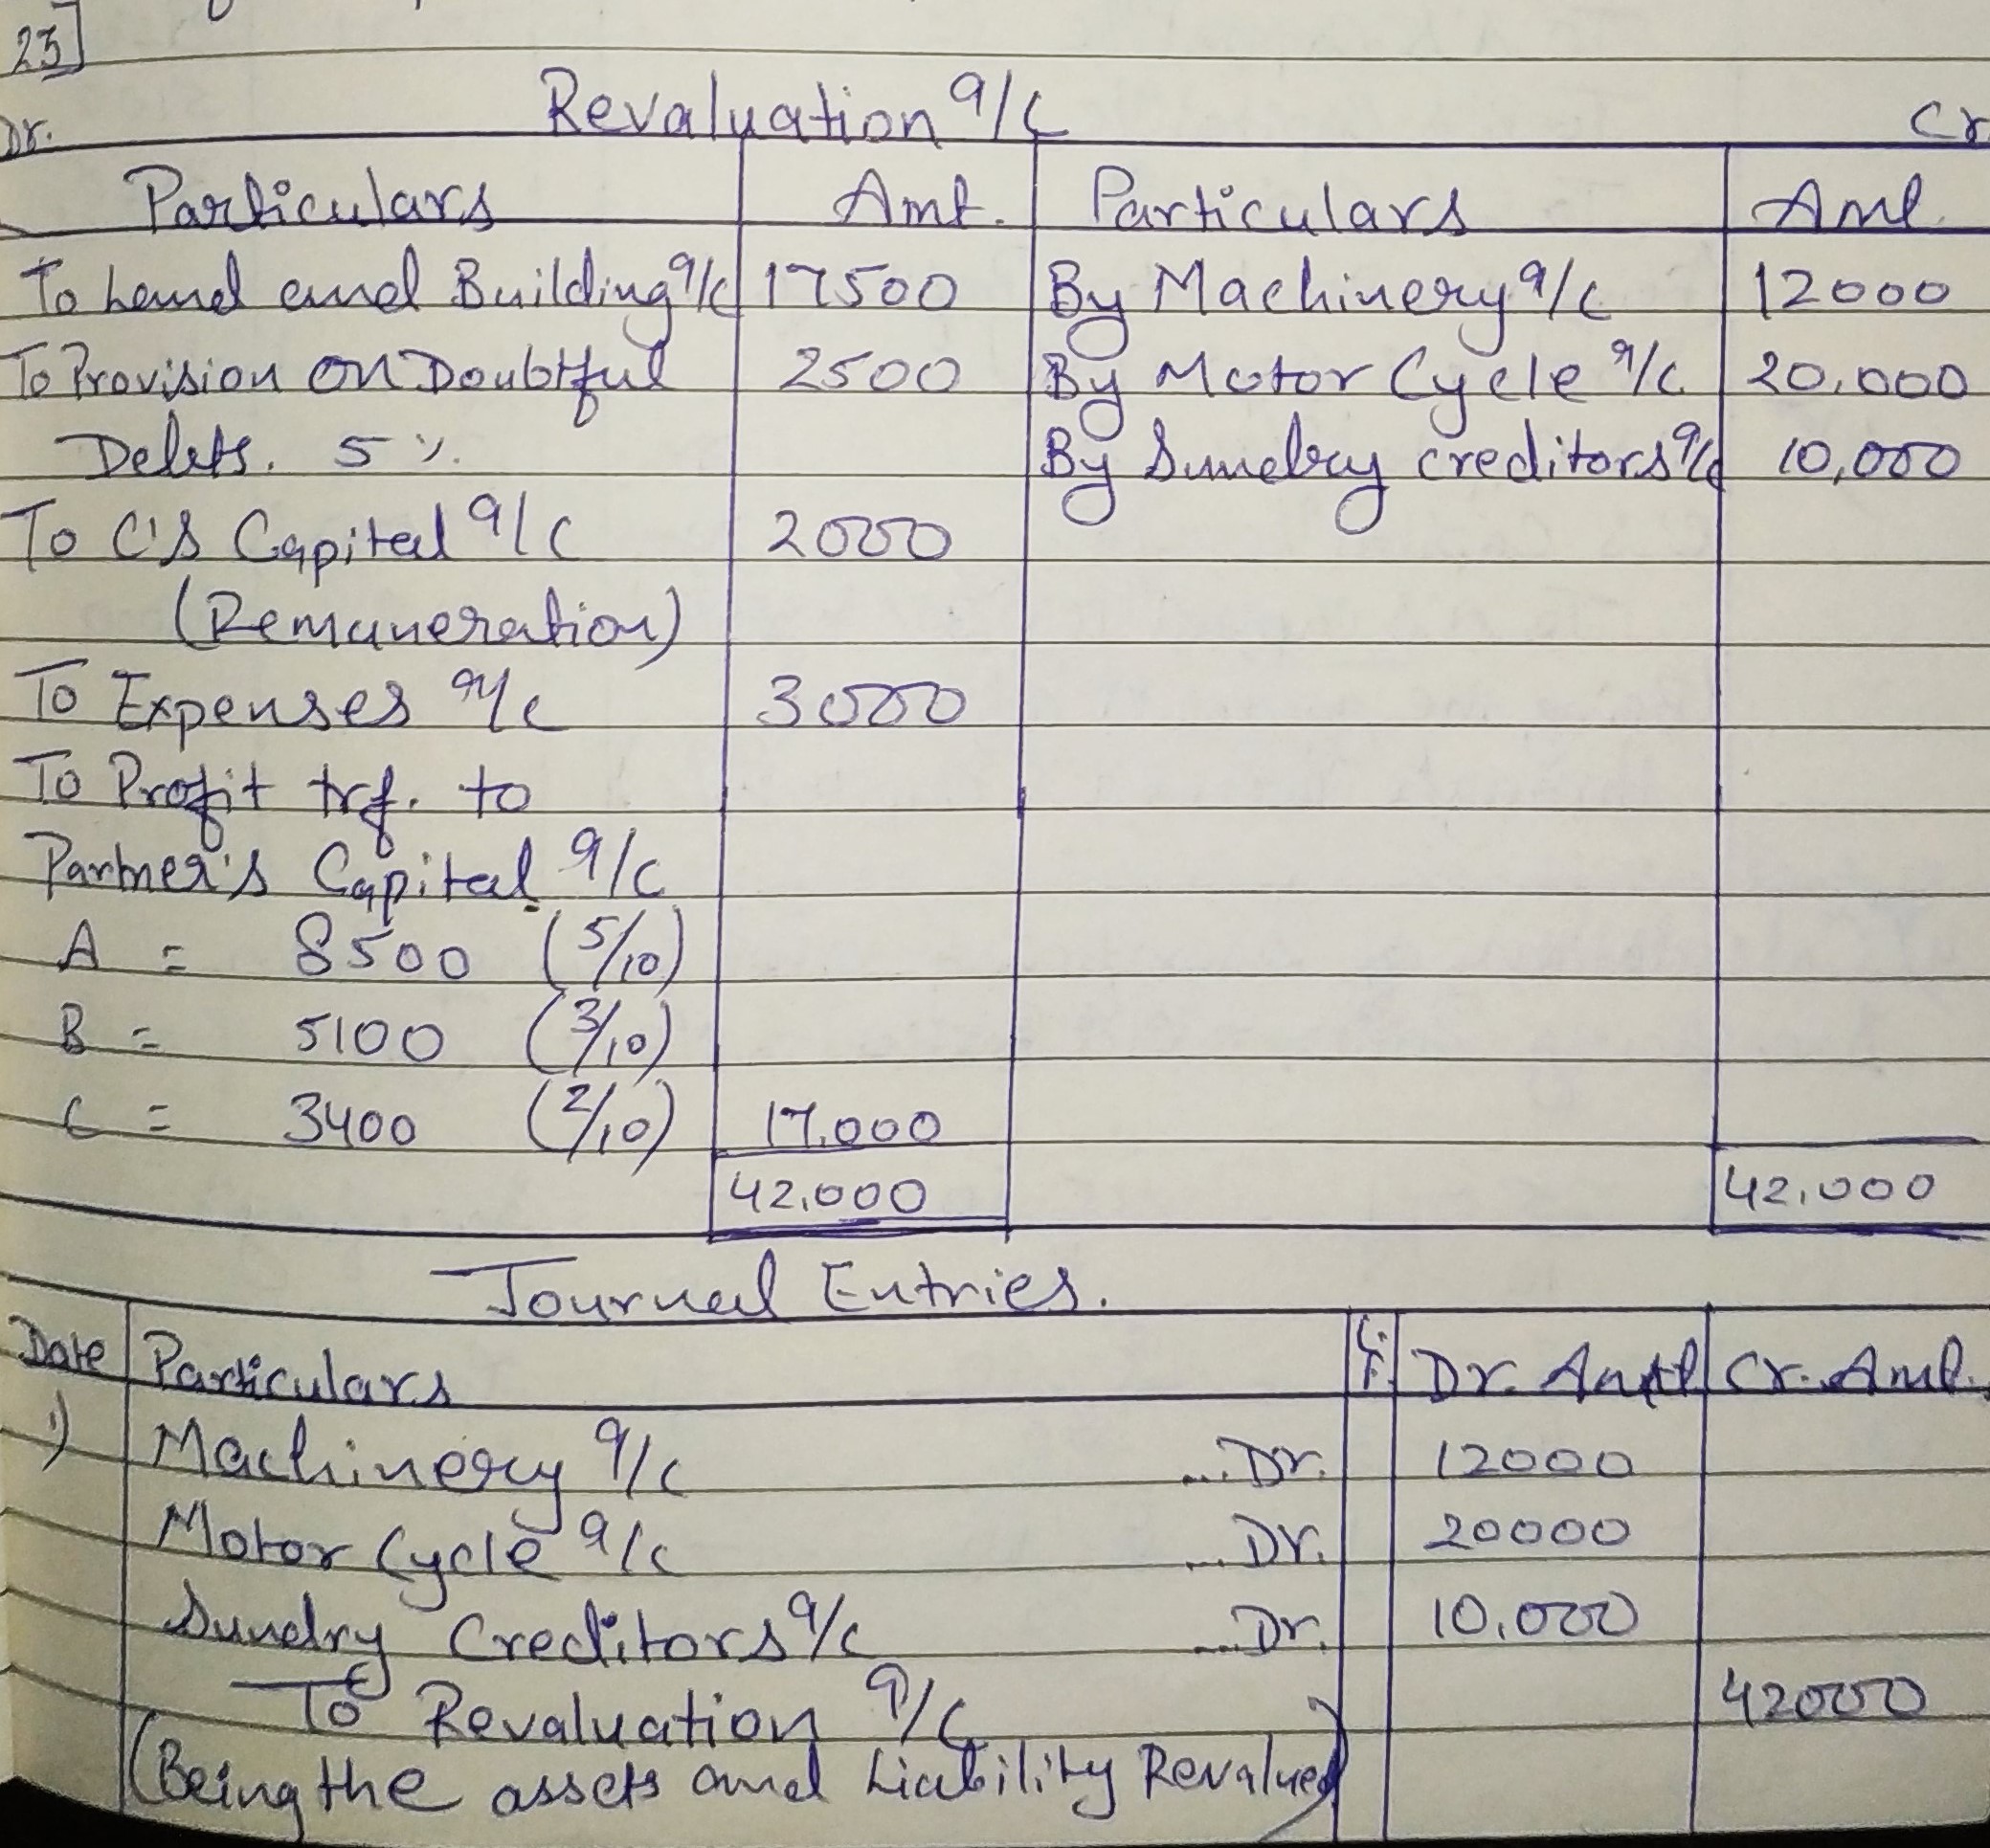 23]
Revaluation a/c
Dr. Cr
Particulars Amt. Particulars Amt.
To Land and Building a/c 17500 By Machinery a/c 12000
To Provision on Doubtful 2500 By Motor Cycle a/c 20,000
Debts. 5%. By Sundry creditors a/c 10,000
To C's Capital a/c 2000
(Remuneration)
To Expenses a/c 3000
To Profit trf. to
Partner's Capital a/c
A = 8500 (5/10)
B = 5100 (3/10)
C = 3400 (2/10) 17,000
42,000 42,000
Journal Entries.
Date Particulars L.F. Dr. Amt Cr. Amt.
1) Machinery a/c ...Dr. 12000
Motor Cycle a/c ...Dr. 20000
Sundry Creditors a/c ...Dr. 10,000
To Revaluation a/c 42000
(Being the assets and Liability Revalued)